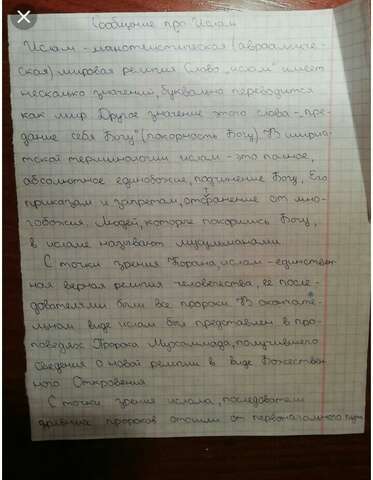 Сообщение про Ислам
Ислам - монотеистическая (авраамиче-
ская) мировая религия. Слово "ислам" имеет
несколько значений, буквально переводится
как мир. Другое значение этого слова - "пре-
дание себя Богу" (покорность Богу). В шариат-
ской терминологии ислам - это полное,
абсолютное единобожие, подчинение Богу, Его
приказам и запретам, отстранение от мно-
гобожия. Людей, которые покорились Богу,
в исламе называют мусульманами.
С точки зрения Корана, ислам - единствен-
ная верная религия человечества, её после-
дователями были все пророки. В окончате-
льном виде ислам был представлен в про-
поведях Пророка Мухаммада, получившего
сведения о новой религии в виде Божествен
ного Откровения
С точки зрения ислама, последователи
древних пророков отошли от первоначального пути